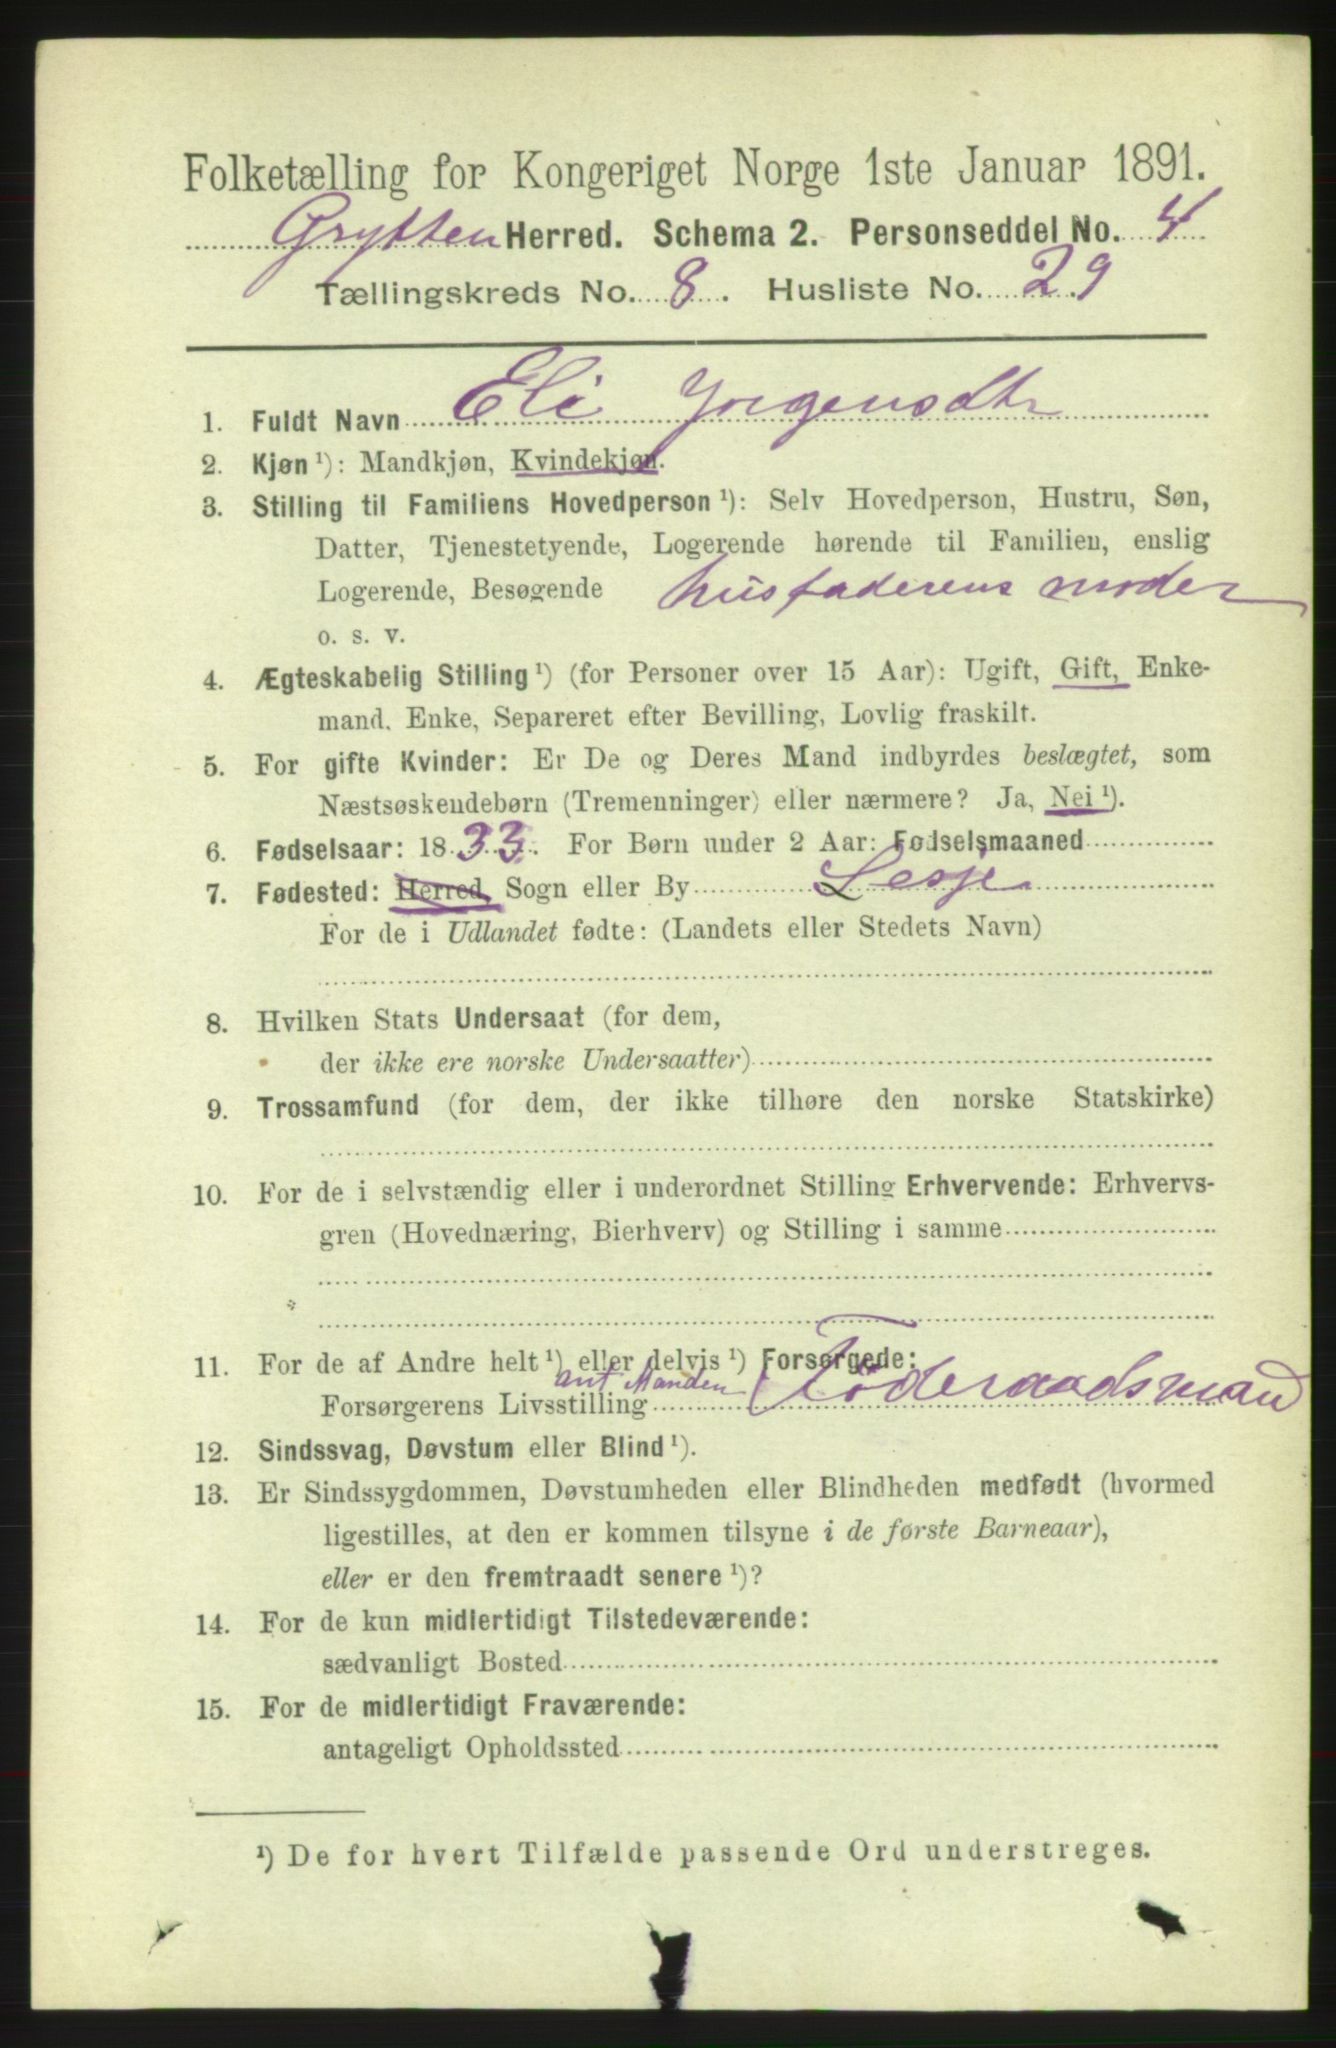 Folketælling for Kongeriget Norge 1ste Januar 1891.
Grytten Herred. Schema 2. Personseddel No. 4
Tællingskreds No. 8. Husliste No. 29
1. Fuldt Navn Eli Jorgensdtr
2. Kjøn ¹): Mandkjøn, Kvindekjøn.
3. Stilling til Familiens Hovedperson ¹): Selv Hovedperson, Hustru, Søn,
Datter, Tjenestetyende, Logerende hørende til Familien, enslig
Logerende, Besøgende husfaderens moder
o. s. v.
4. Ægteskabelig Stilling ¹) (for Personer over 15 Aar): Ugift, Gift, Enke-
mand, Enke, Separeret efter Bevilling, Lovlig fraskilt.
5. For gifte Kvinder: Er De og Deres Mand indbyrdes beslægtet, som
Næstsøskendebørn (Tremenninger) eller nærmere? Ja, Nei ¹).
6. Fødselsaar: 1833. For Børn under 2 Aar: Fødselsmaaned
7. Fødested: Herred, Sogn eller By Lesje
For de i Udlandet fødte: (Landets eller Stedets Navn)
8. Hvilken Stats Undersaat (for dem,
der ikke ere norske Undersaatter)
9. Trossamfund (for dem, der ikke tilhøre den norske Statskirke)
10. For de i selvstændig eller i underordnet Stilling Erhvervende: Erhvervs-
gren (Hovednæring, Bierhverv) og Stilling i samme
11. For de af Andre helt ¹) eller delvis ¹) Forsørgede:
Manden
Forsørgerens Livsstilling Föderaadsmand
12. Sindssvag, Døvstum eller Blind ¹).
13. Er Sindssygdommen, Døvstumheden eller Blindheden medfødt (hvormed
ligestilles, at den er kommen tilsyne i de første Barneaar),
eller er den fremtraadt senere ¹)?
14. For de kun midlertidigt Tilstedeværende:
sædvanligt Bosted
15. For de midlertidigt Fraværende:
antageligt Opholdssted
¹) De for hvert Tilfælde passende Ord understreges.